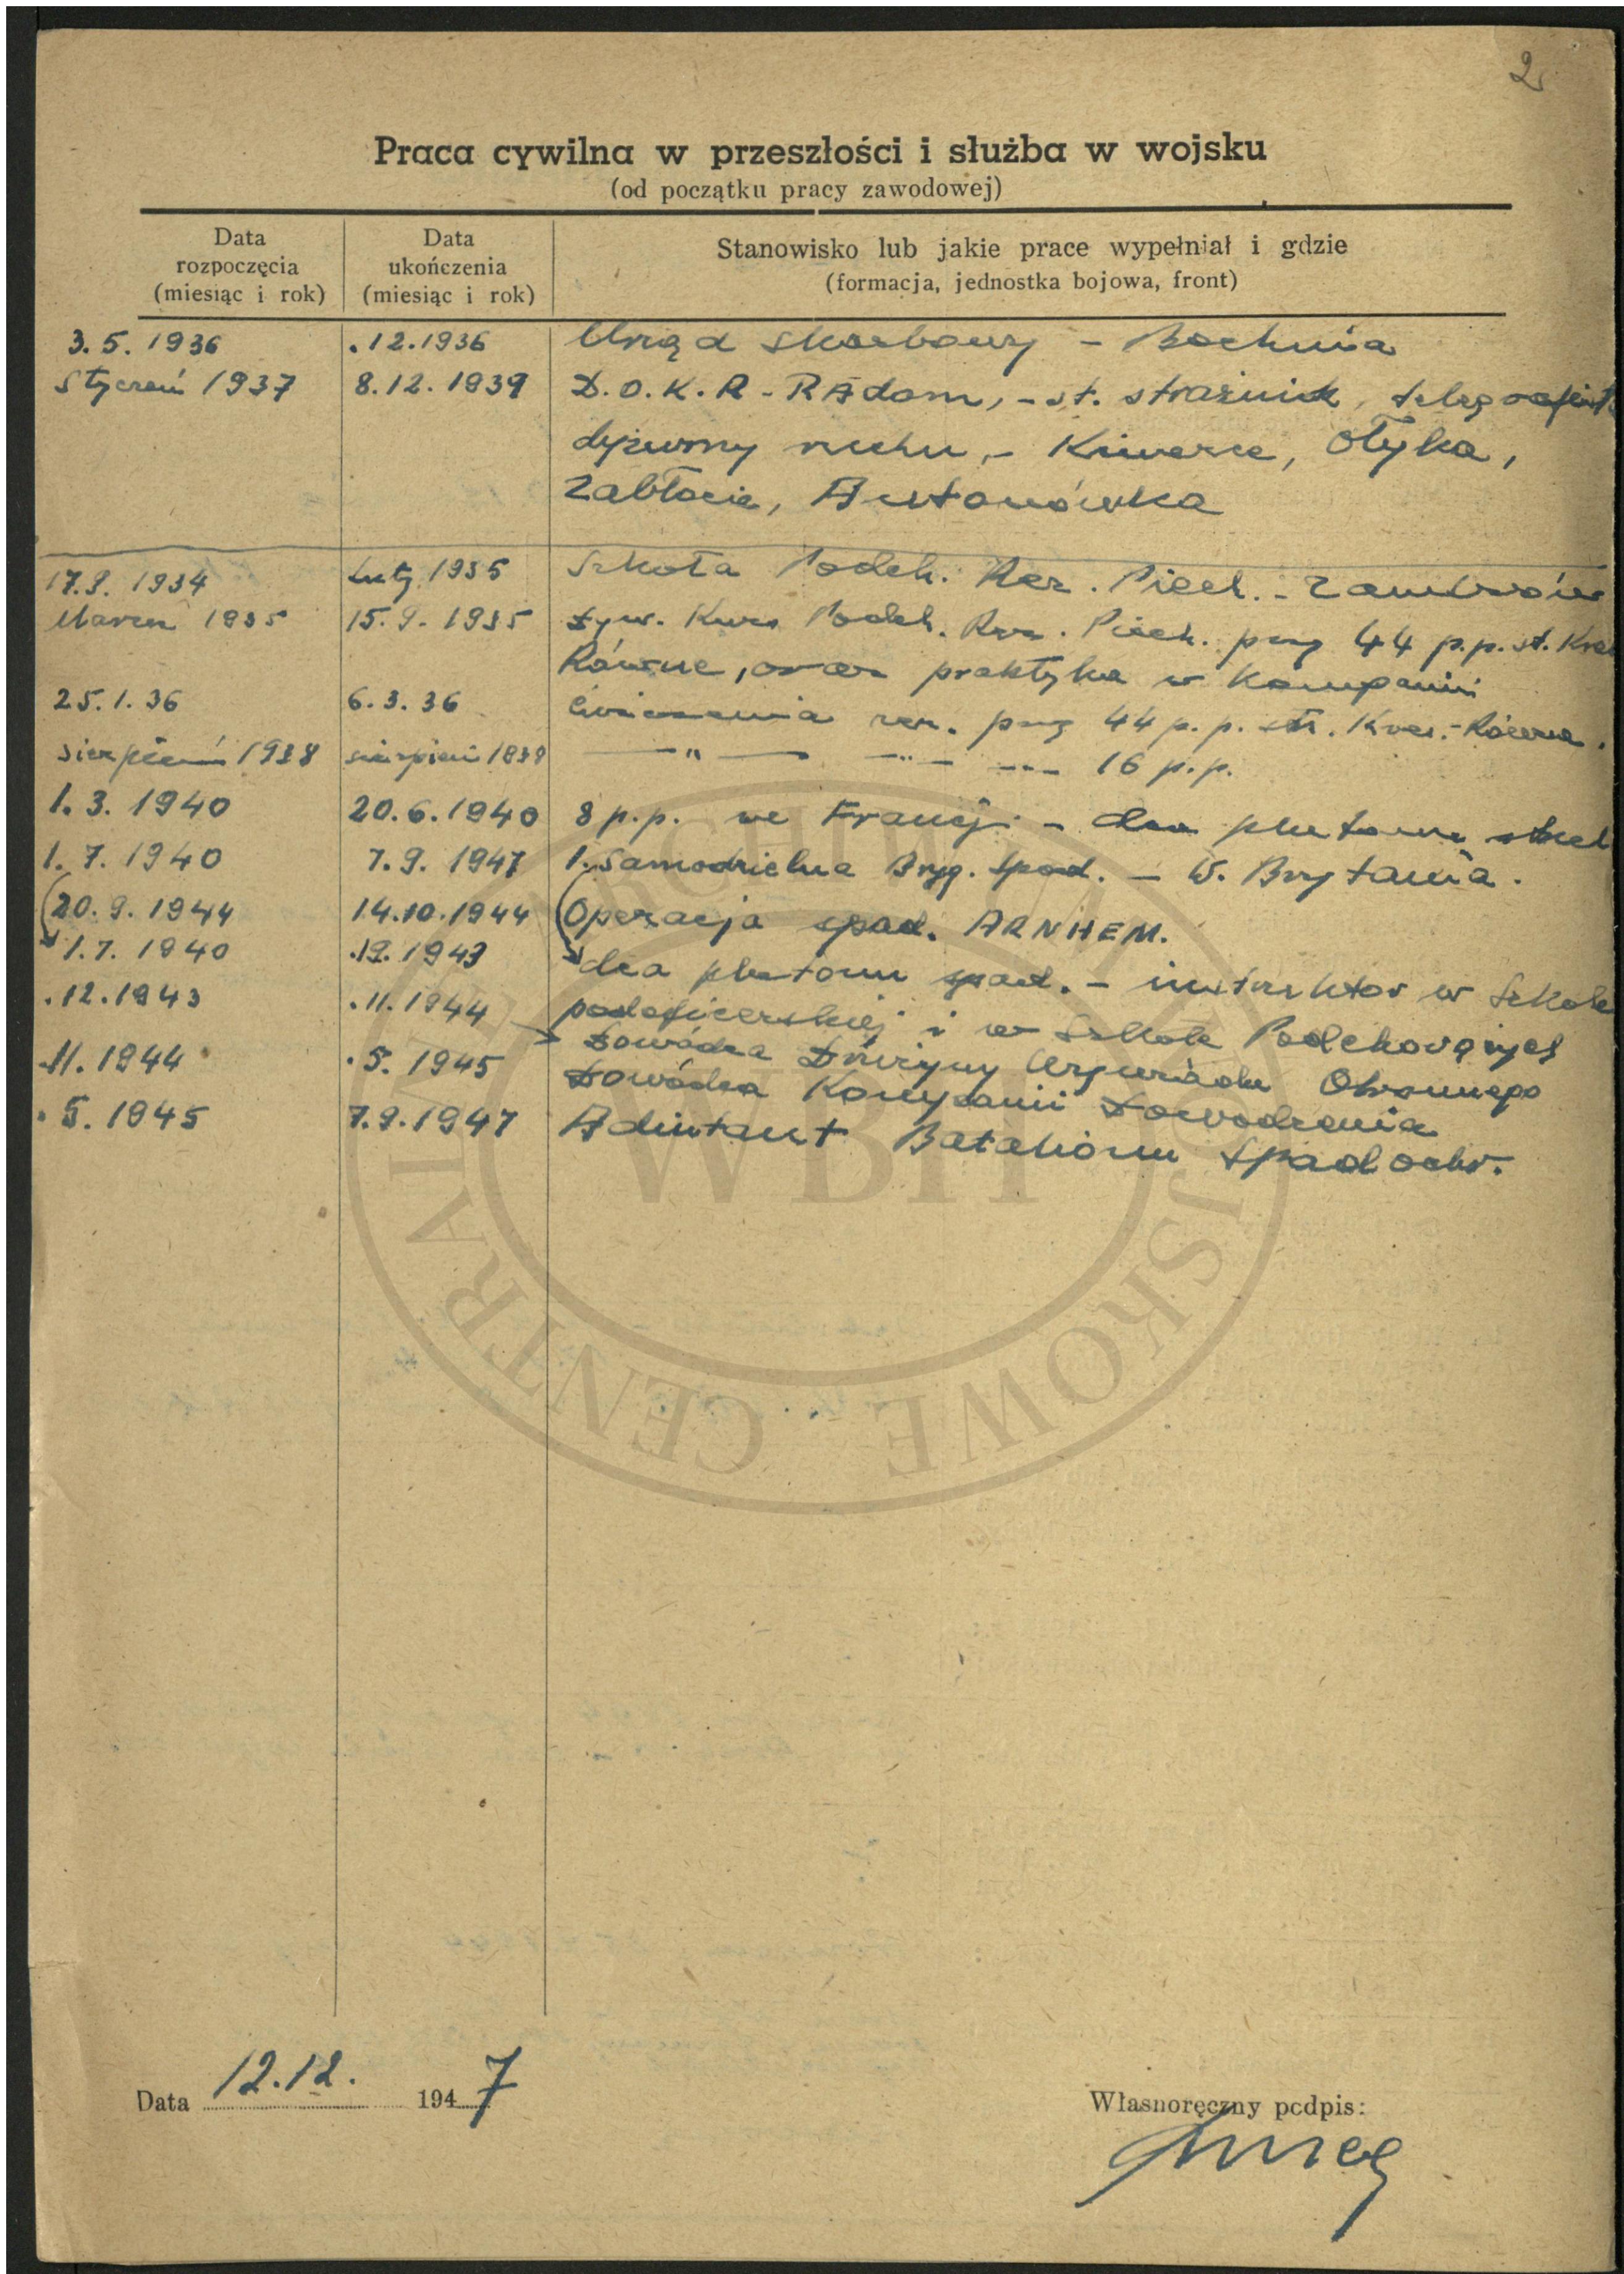 2
Praca cywilna w przeszłości i służba w wojsku
(od początku pracy zawodowej)
Data rozpoczęcia (miesiąc i rok) Data ukończenia (miesiąc i rok) Stanowisko lub jakie prace wypełniał i gdzie (formacja, jednostka bojowa, front)
3. 5. 1936 . 12.1936 Urząd Skarbowy - Bochnia
Styczeń 1937 8.12.1939 D.O.K.R - RAdom, - st. strażnik, telegrafista
dyżurny ruchu, - Kiwerce, Ołyka,
Zabłocie, Antonówka
17.9. 1934 Luty 1935 Szkoła Podch. Rez. Piech. - Zambrów
Marzec 1935 15.9.1935 Dyw. Kurs Podch. Rez. Piech. przy 44 p.p. st. Kres
Równe, oraz praktyka w Kompanii
25.1.36 6.3.36 Ćwiczenia rez. przy 44 p.p. str. Kres. - Równe.
sierpień 1938 sierpień 1938 — " — — " — --- 16 p.p.
1. 3. 1940 20.6.1940 8 p.p. we Francji - dca plutonu strzel
1. 7. 1940 7.9. 1947 1. Samodzielna Bryg. Spad. - W. Brytania.
(20.9.1944 14.10.1944 (Operacja spad. ARNHEM.
1.7. 1940 .12.1943 dca plutonu spad. - instruktor w Szkole
podoficerskiej i w Szkole Podchorążych
.12.1943 .11.1944 Dowódca Drużyny Wywiadu Obronnego
.11.1944 .5. 1945 Dowódca Kompanii Dowodzenia
. 5. 1945 7.9.1947 Adiutant Batalionu Spadochr.
CENTRALNE ARCHIWUM WOJSKOWE
WBH
Data 12.12. 1947
Własnoręczny podpis: